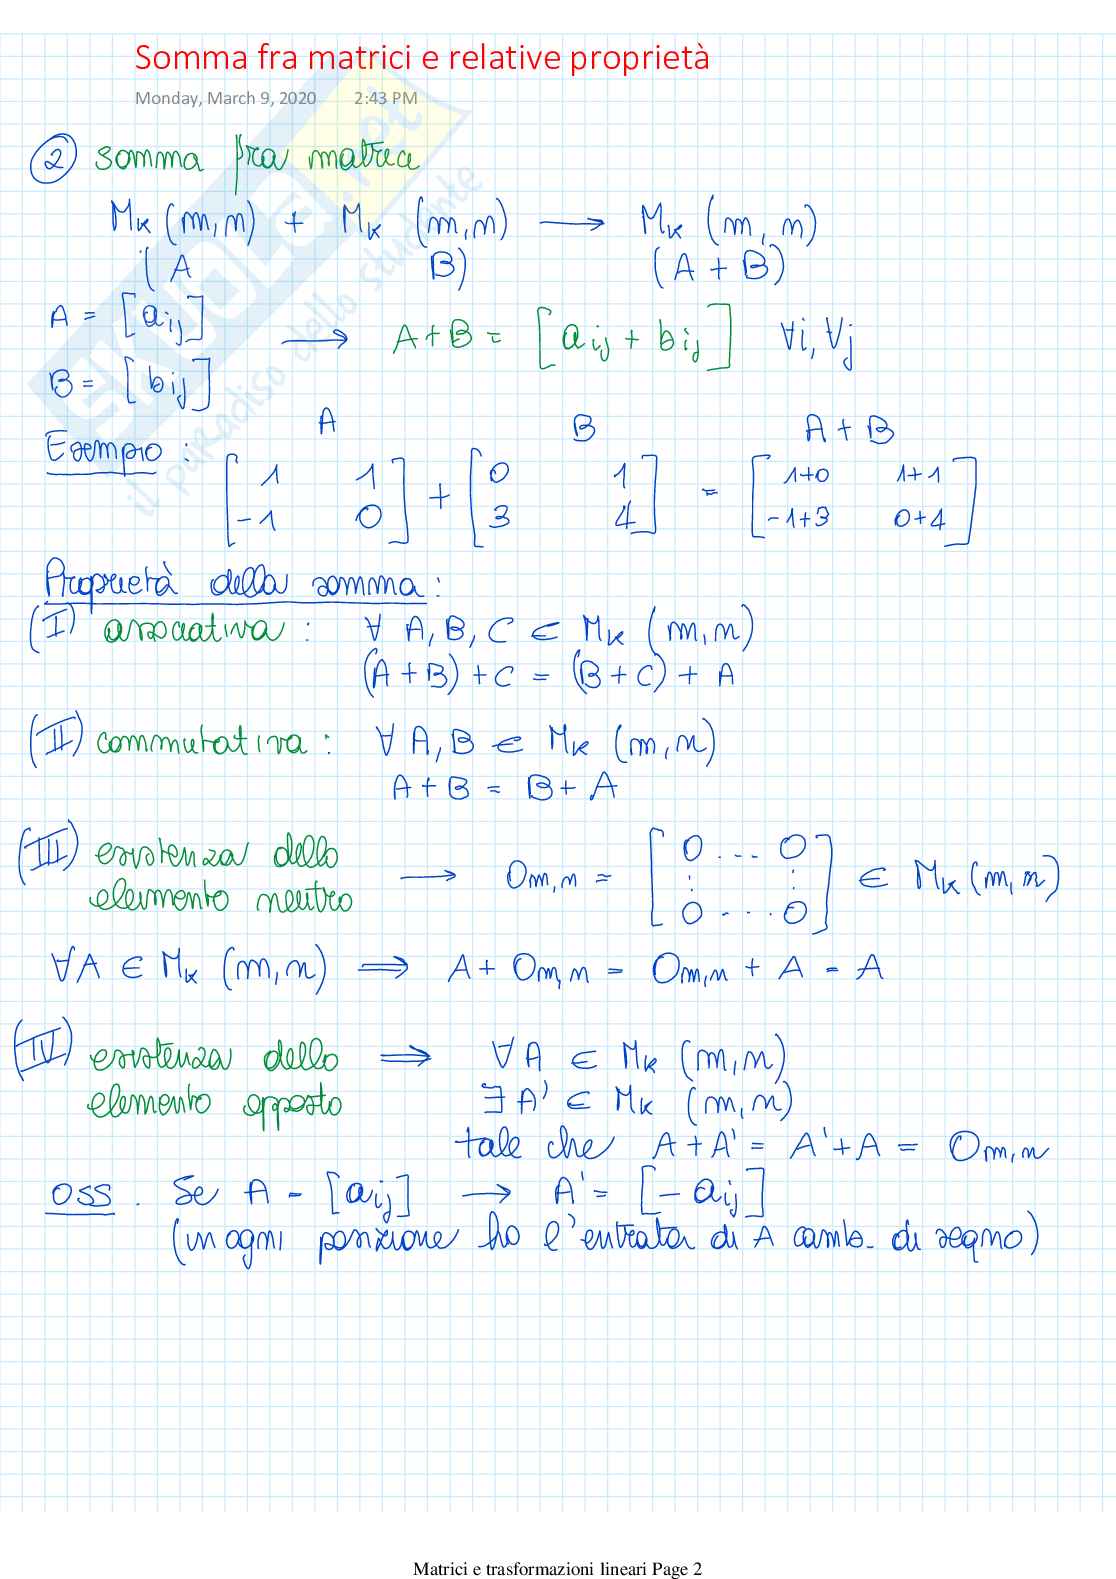 Somma fra matrici e relative proprietà
Monday, March 9, 2020 2:43 PM
② somma fra matrici
Mκ (m,n) + Mκ (m,n) ⟶ Mκ (m,n)
(A B) (A + B)
A = [aij]
⟶ A+B = [aij + bij] ∀i, ∀j
B = [bij]
A B A + B
Esempio : [1 1 -1 0] + [0 1 3 4] = [1+0 1+1 -1+3 0+4]
Proprietà della somma :
(I) associativa : ∀ A, B, C ∈ Mκ (m,n)
(A + B) + C = (B + C) + A
(II) commutativa : ∀ A, B ∈ Mκ (m,n)
A + B = B + A
(III) esistenza dello
elemento neutro ⟶ Om,n = [0 ... 0 : : 0 ... 0] ∈ Mκ (m,n)
∀A ∈ Mκ (m,n) ⟹ A + Om,n = Om,n + A = A
(IV) esistenza dello ⟹ ∀A ∈ Mκ (m,n)
elemento opposto ∃ A' ∈ Mκ (m,n)
tale che A + A' = A' + A = Om,n
OSS . Se A = [aij] ⟶ A' = [- aij]
(in ogni posizione ho l'entrata di A camb. di segno)
SKUOLA.net
il paradiso dello studente
Matrici e trasformazioni lineari Page 2